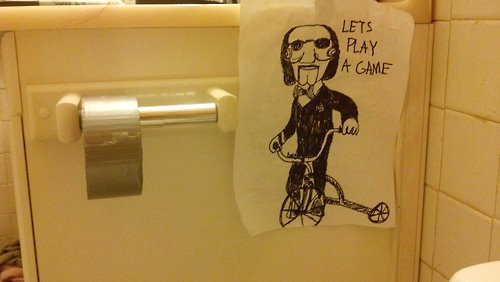 LETS
PLAY
A GAME